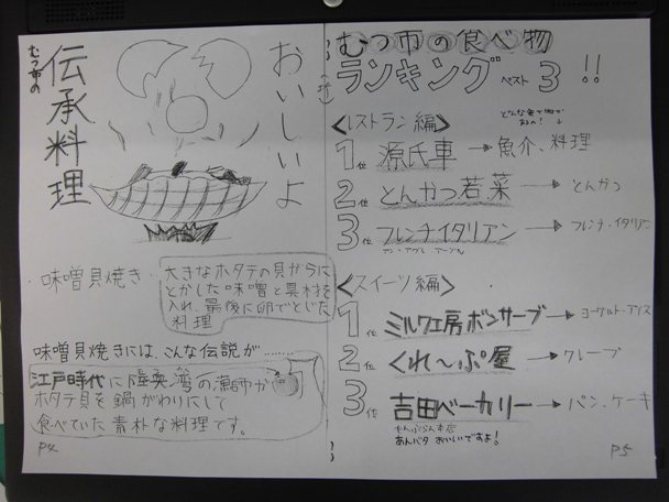 おいしいよ
むつ市の
伝承料理
・味噌貝焼き
大きなホタテの貝がらに
とかした味噌と具材を
入れ、最後に卵でとじた
料理
味噌貝焼きには、こんな伝説が……
江戸時代に陸奥湾の漁師が
ホタテ貝を鍋がわりにして
食べていた素朴な料理です。
P4
むつ市の食べ物
ランキング ベスト3!!
<レストラン編>
1位 源氏車→魚介、料理
2位 とんかつ若菜→とんかつ
3位 フレンチイタリアン→フレンチ・イタリアン
<スイーツ編>
1位 ミルク工房ボンサーブ→ヨーグルト・アイス
2位 くれ〜ぷ屋→クレープ
3位 吉田ベーカリー→パン、ケーキ
あんバタおいしいですよ!
P5